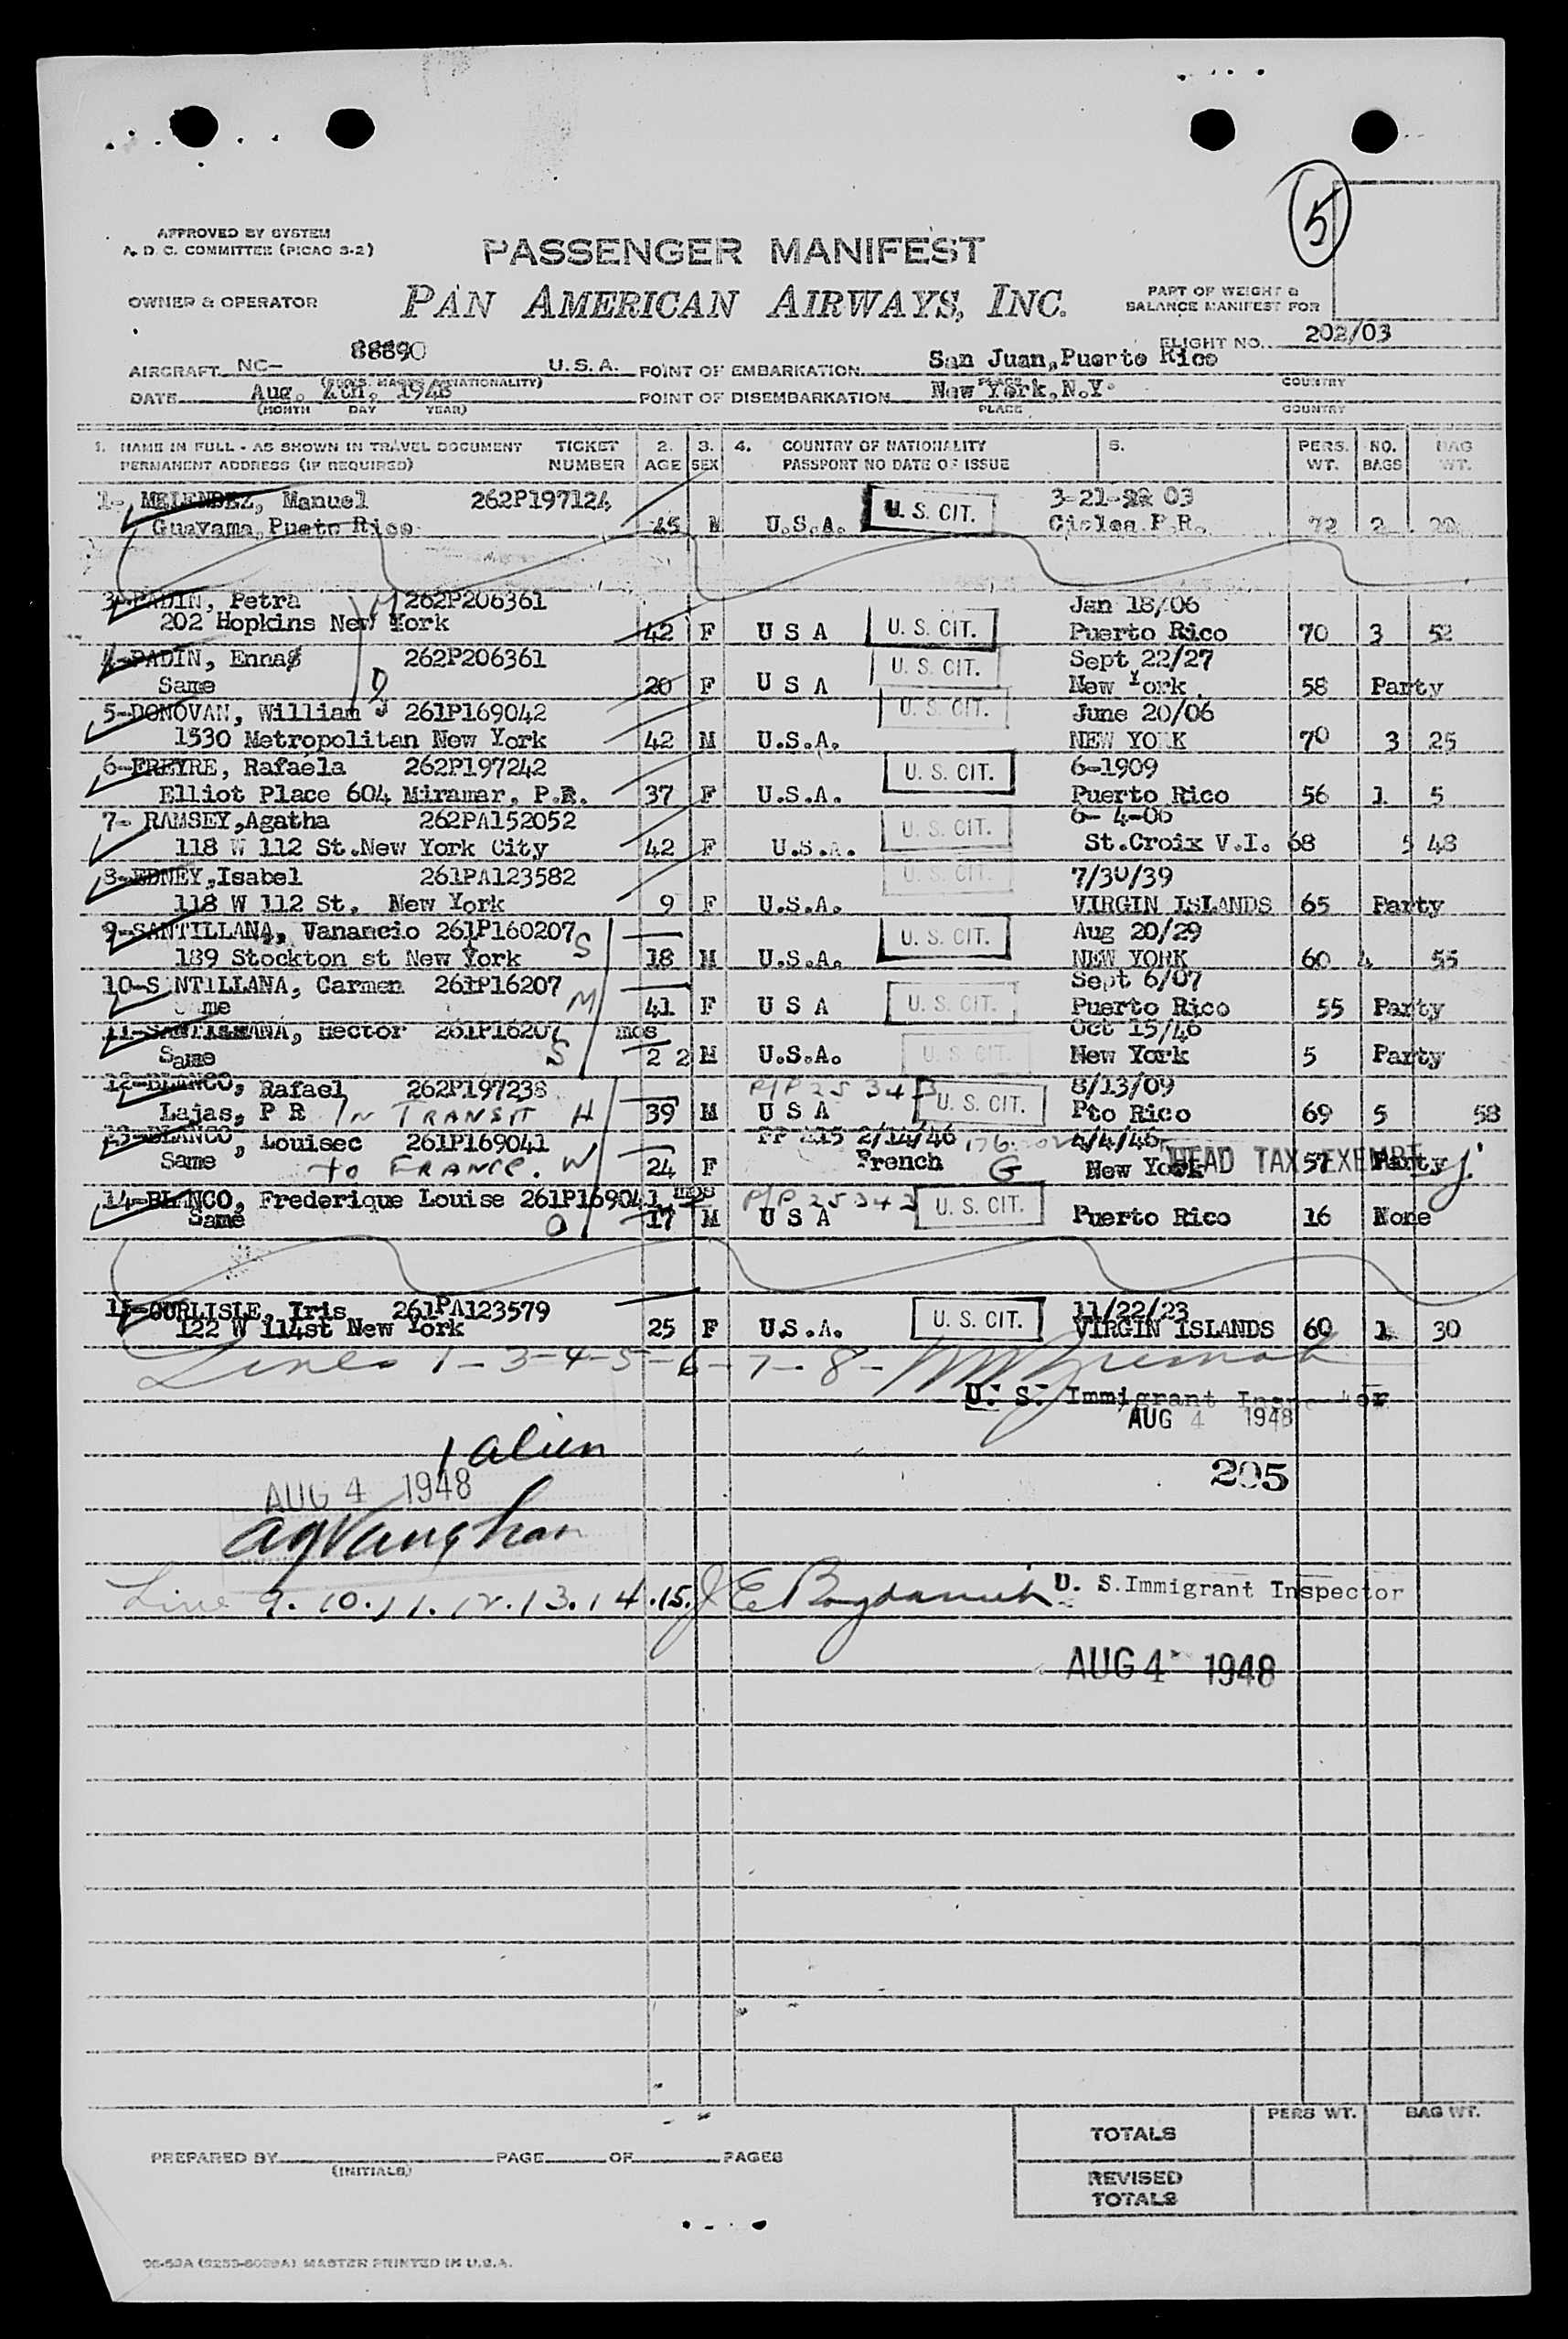 5
APPROVED BY SYSTEM
A. D. C. COMMITTEE (PICAO S-2)
PASSENGER MANIFEST
OWNER & OPERATOR
PAN AMERICAN AIRWAYS, INC.
PART OF WEIGHT &
BALANCE MANIFEST FOR
FLIGHT NO. 202/03
AIRCRAFT NC- 88890 U.S.A. POINT OF EMBARKATION San Juan,Puerto Rico
PLACE COUNTRY
DATE Aug. 4th, 1948 POINT OF DISEMBARKATION New York,N.Y.
(MONTH DAY YEAR) PLACE COUNTRY
1. NAME IN FULL - AS SHOWN IN TRAVEL DOCUMENT TICKET 2. 3. 4. COUNTRY OF NATIONALITY 5. PERS. NO. BAG
PERMANENT ADDRESS (IF REQUIRED) NUMBER AGE SEX PASSPORT NO DATE OF ISSUE WT. BAGS WT.
1- MELENDEZ, Manuel 262P197124 U. S. CIT. 3-21- 03
Guayama,Pueto Rico 45 M U.S.A. P.R. 72 2
3-PADIN, Petra M 262P206361 Jan 18/06
202 Hopkins New York 42 F U S A U. S. CIT. Puerto Rico 70 3 52
4-PADIN, Enna 262P206361 U. S. CIT. Sept 22/27
Same D 20 F U S A New York. 58 Party
5-DONOVAN, William J 261P169042 U. S. CIT. June 20/06
1530 Metropolitan New York 42 M U.S.A. NEW YO K 70 3 25
6-FREYRE, Rafaela 262P197242 U. S. CIT. 6-1909
Elliot Place 604 Miramar, P.R. 37 F U.S.A. Puerto Rico 56 1 5
7- RAMSEY,Agatha 262PA152052 U. S. CIT. 6- 4-06
118 W 112 St.New York City 42 F U.S.A. St.Croix V.I. 68 5 48
8-EDNEY,Isabel 261PA123582 U. S. CIT. 7/30/39
118 W 112 St. New York 9 F U.S.A. VIRGIN ISLANDS 65 Party
9-SANTILLANA, Vanancio 261P160207 S U. S. CIT. Aug 20/29
189 Stockton st New York 18 M U.S.A. NEW YORK 60 4 55
10-S NTILLANA, Carmen 261P16207 M U. S. CIT. Sept 6/07
me 41 F U S A Puerto Rico 55 Party
11-SANTILLANA, Hector 261P16207 mos Oct 15/46
Same S 2 2 M U.S.A. U. S. CIT. New York 5 Party
12-BLANCO, Rafael 262P197238 P/P 25343 U. S. CIT. 8/13/09
Lajas, P R IN TRANSIT H 39 M U S A Pto Rico 69 5 58
13-BLANCO, Louisec 261P169041 PP 2/14/46 4/4/46
Same to FRANCE. W 24 F French G New York HEAD TAX EXEMPT 57 Party
14-BLNCO, Frederique Louise 261P169041 mos P/P 25343 U. S. CIT.
Same 17 M U S A Puerto Rico 16 None
15-CURLISLE, Iris 261PA123579 U. S. CIT. 11/22/23
122 W 114st New York 25 F U.S.A. VIRGIN ISLANDS 60 1 30
Lines 1-3-4-5-6-7-8-
U. S. Immigrant Inspector
AUG 4 1948
1 alien
205
AUG 4 1948
Line 9.10.11.12.13.14.15. U. S.Immigrant Inspector
AUG 4 1948
PERS WT. BAG WT.
TOTALS
PREPARED BY PAGE OF PAGES
(INITIALS)
REVISED
TOTALS
MASTER PRINTED IN U.S.A.